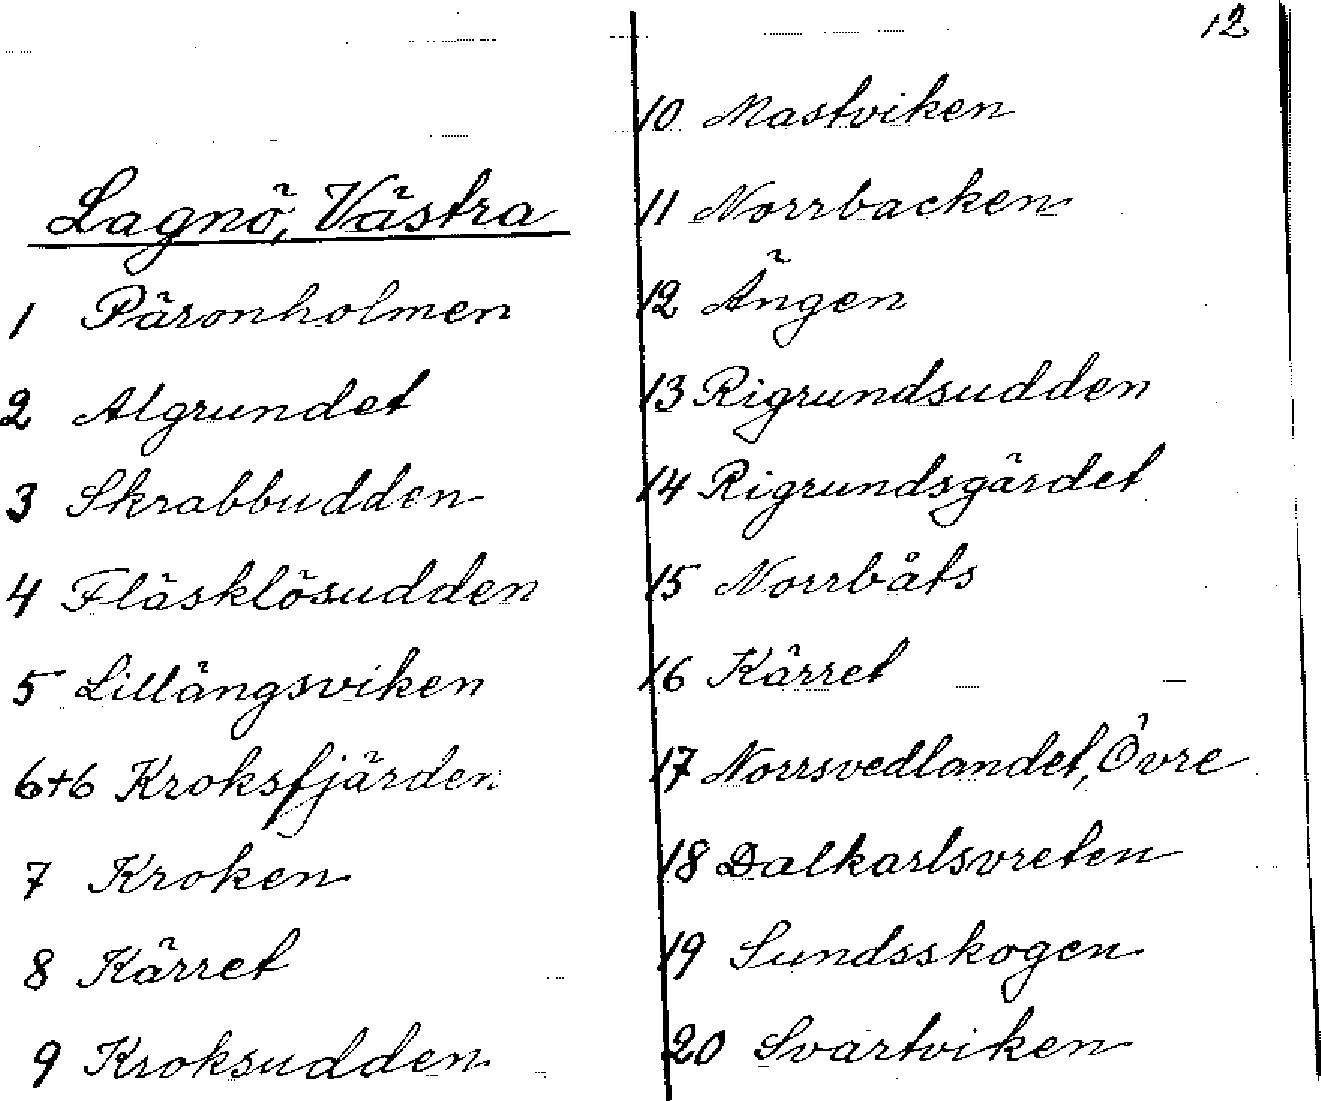 12
Lagnö, Västra
1 Päronholmen
2 Algrundet
3 Skrabbudden
4 Fläsklösudden
5 Lillängsviken
6+6 Kroksfjärden
7 Kroken
8 Kärret
9 Kroksudden
10 Mastviken
11 Norrbacken
12 Ängen
13 Rigrundsudden
14 Rigrundsgärdet
15 Norrbåts
16 Kärret
17 Norrsvedlandet, Övre
18 Dalkarlsvreten
19 Sundsskogen
20 Svartviken